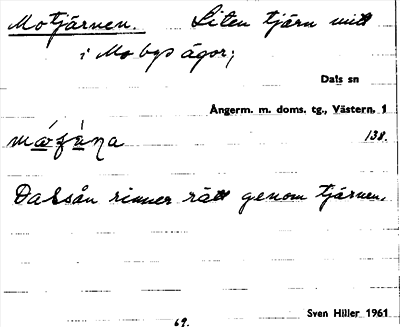 Motjärnen. Liten tjärn mitt
i Mo bys ägor;
Dals sn
Ångerm. m. doms. tg., Västern, 1
138.
Dalsån rinner rätt genom tjärnen.
69.
Sven Hiller 1961